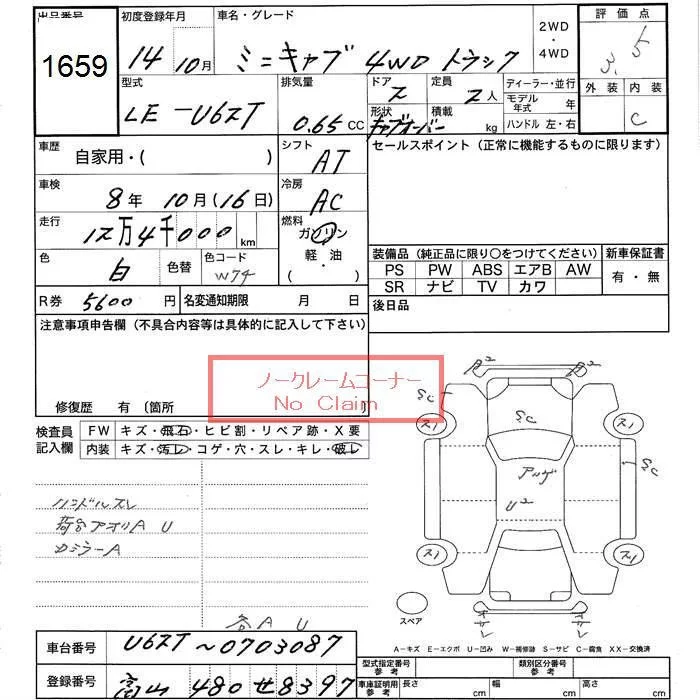 出品番号 初度登録年月 車名・グレード 2WD・4WD 評価点
1659 14年10月 ミニキャブ 4WD トラック 3.5
型式 排気量 ドア 定員 ディーラー・並行 外装 内装
LE-U62T 0.65 CC 2 2人 モデル年式 年 C
形状 積載 kg ハンドル 左・右
キャブオーバー
車歴 自家用・( ) シフト AT セールスポイント(正常に機能するものに限ります)
車検 8年 10月(16日) 冷房 AC
走行 12万4千000km 燃料 ガソリン 軽・油 ( )
色 白 色替 色コード W74
装備品(純正品に限り○をつけてください) 新車保証書
PS PW ABS エアB AW 有・無
SR ナビ TV カワ
R券 5600円 名変通知期限 月 日 後日品
注意事項申告欄(不具合内容等は具体的に記入して下さい)
ノークレームコーナー
No Claim
修復歴 有 〔箇所
検査員記入欄 FW キズ・飛石・ヒビ割・リペア跡・X要
内装 キズ・汚レ・コゲ・穴・スレ・キレ・破レ
ハンドルスレ
荷台アオリA U
カミラーA
各A U
B2 B2
SC SC SC
スリ スリ
アルゲ
U2
スリ スリ
スペア
A-キズ E-エクボ U-凹み W-補修跡 S-サビ C-腐食 XX-交換済
車台番号 U62T~0703087
登録番号 富山 480 せ 8397
型式指定番号 参考 類別区分番号 参考
車庫証明用 参考 長さ cm 幅 cm 高さ cm